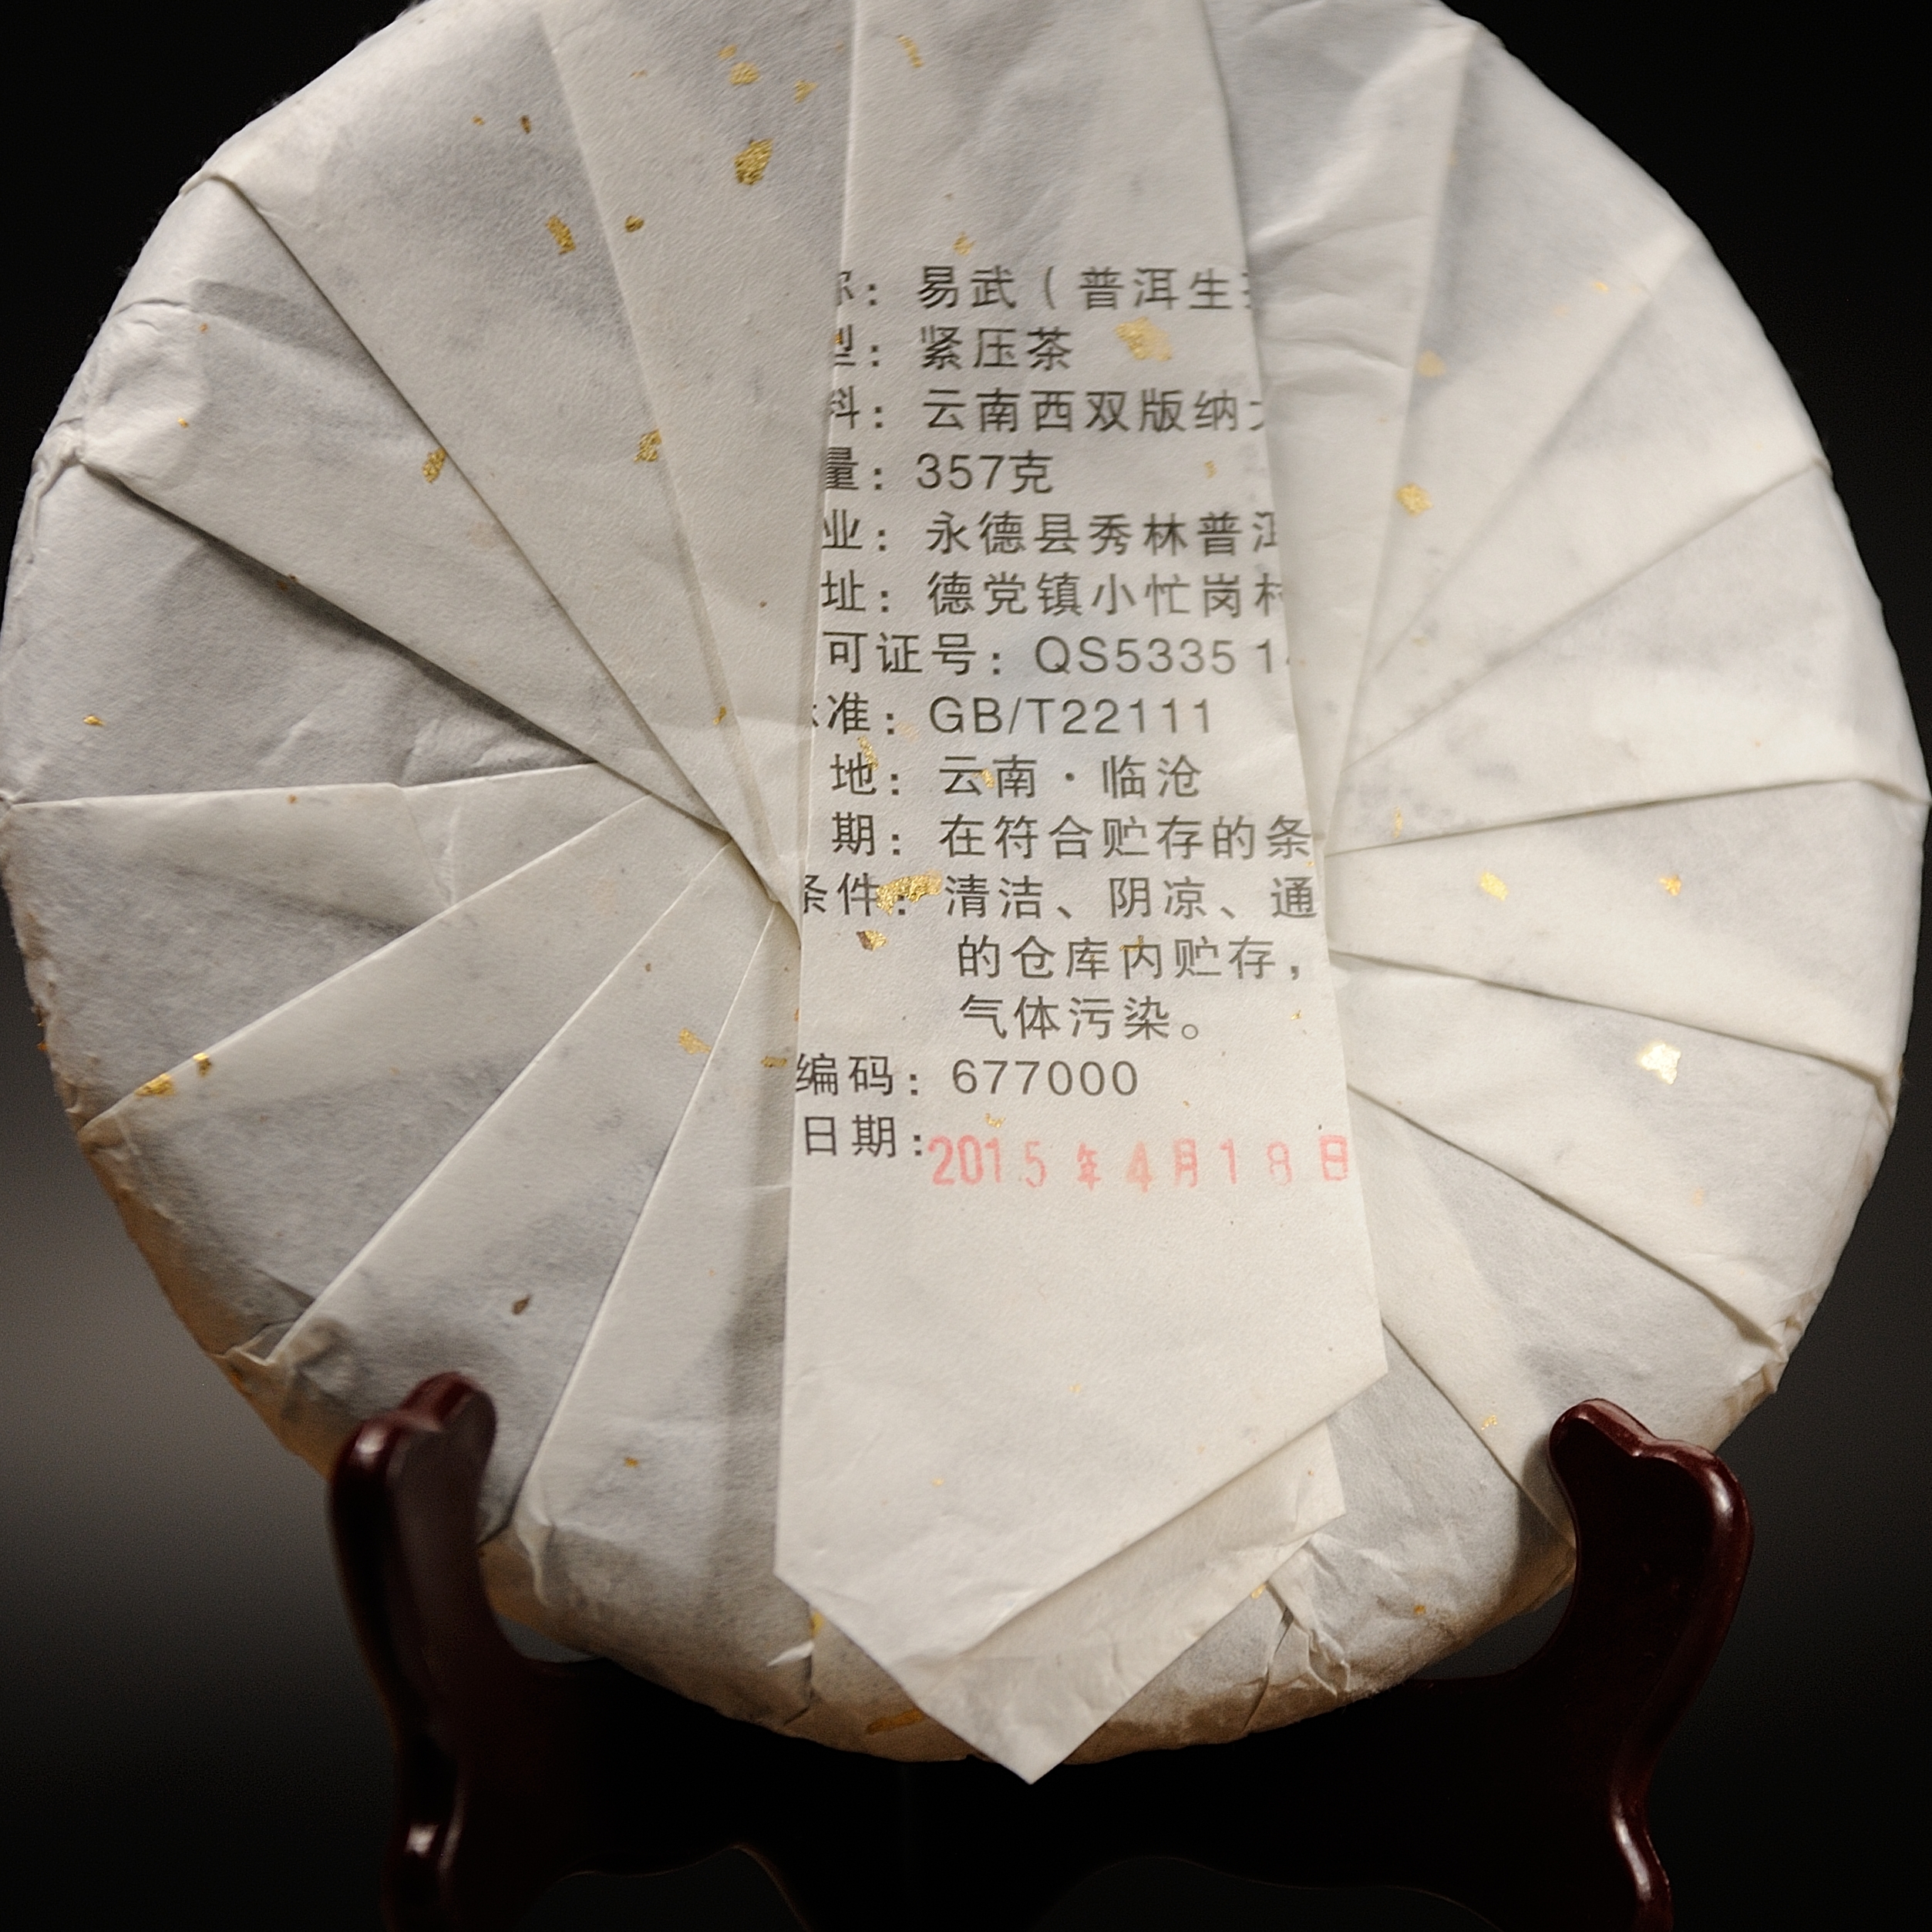 称：易武（普洱生
型：紧压茶
料：云南西双版纳
量：357克
业：永德县秀林普洱
址：德党镇小忙岗村
可证号：QS5335 1
准：GB/T22111
地：云南·临沧
期：在符合贮存的条
条件：清洁、阴凉、通
的仓库内贮存，
气体污染。
编码：677000
日期：2015年4月18日